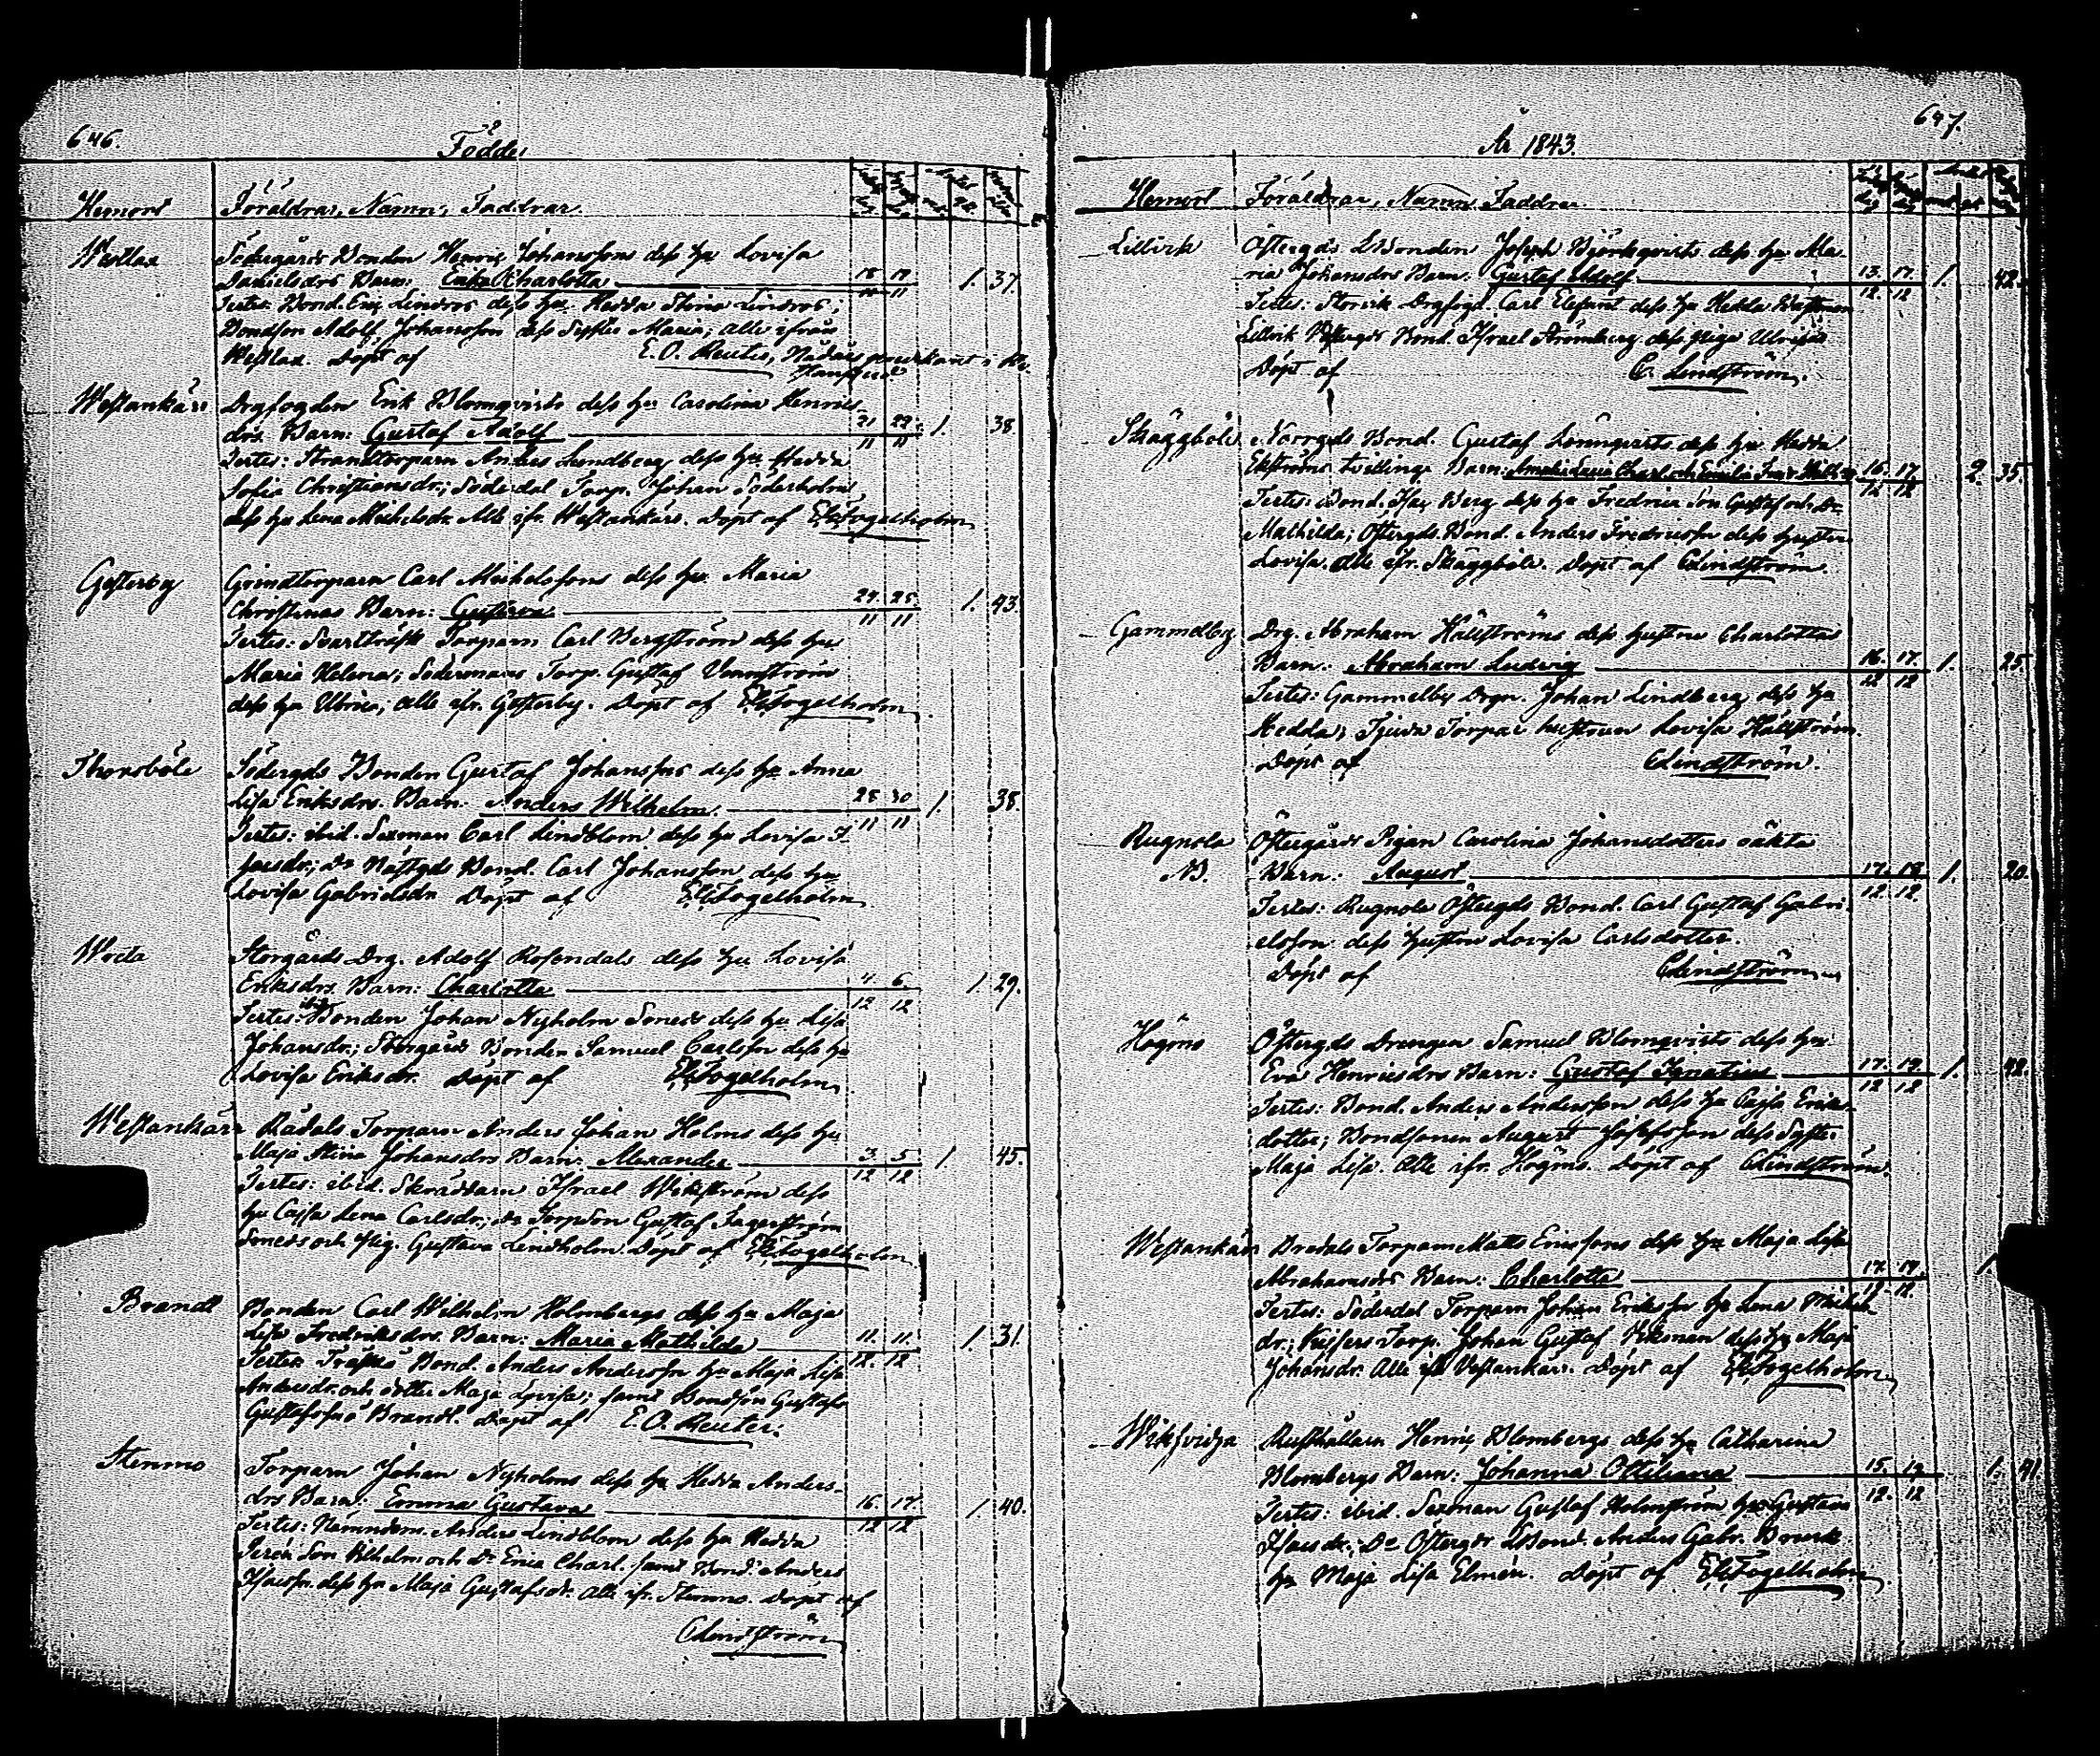 646.
Födde
Hemort Föräldrar, Namn, Faddrar.
Westlax Södergårds Bonden Henric Johanssons dess hu Lovisa
Danielsdrs Barn: Erika Charlotta 18 19 1. 37.
11 11
Testes: Bond. Eric Lindros dess hu Hedda Stina Lindros;
Bondson Adolf Johansson dess Syster Maria; alle ifrån
Westlax. Döpt af E. O. Reuter, Nådårs predikant i
Westankärr Drgfogden Erik Blomqvists dess hu Carolina Henrics
drs. Barn: Gustaf Adolf 21 22 1. 38.
11 11
Testes: Strandtorparn Anders Lundberg dess hu Hedda
Sofia Christiansdr.; Söderdal Torp. Johan Söderholm
dess hu Lena Michelsdr. Alle ifr. Westankärr. Döpt af Fogelholm
Gesterby Grindtorparn Carl Michelssons dess hu Maria
Christinas Barn: Gustava 24 25 1. 43.
11 11
Testes: Svartträsk Torparn Carl Bergström dess hu
Maria Helena; Södermans Torp. Gustaf Vennström
dess hu Ulrica; alle ifr. Gesterby. Döpt af Fogelholm
Thorsböle Södergds Bonden Gustaf Johanssons dess hu Anna
Lisa Eriksdrs. Barn: Anders Wilhelm 28 30 1. 38.
11 11
Testes: ibid. Sexman Carl Lindblom dess hu Lovisa I-
sacsdr.; Do Bond. Carl Johansson dess hu
Lovisa Gabrielsdr Döpt af Fogelholm
Wreta Storgårds Drg. Adolf Rosendals dess hu Lovisa
Eriksdrs. Barn: Charlotta 4 6 1. 29.
12 12
Testes: Bonden Johan Nyholm Sonens dess hu Lisa
Johansdr.; Storgårds Bonden Samuel Carlsson dess hu
Lovisa Eriksdr. Döpt af Fogelholm
Westankärr Rådals Torparn Anders Johan Holms dess hu
Maja Stina Johansdrs Barn: Alexander 3 5 1 45.
12 12
Testes: ibid. Skräddarn Israel Wikström dess
hu Cajsa Lena Carlsdr.; Do Torpson Gustaf Fagerström
och Pig. Gustava Lindholm. Döpt af Fogelholm
Brandt Bonden Carl Wilhelm Holmbergs dess hu Maja
Lisa Fredriksdrs. Barn: Maria Mathilda 11. 11. 1. 31.
12. 12
Testes: Träskö Bond. Anders Andersson hu Maja Lisa
Andersdr. och dotter Maja Lovisa; samt Bondson Gustaf
Gustafsson Brandt. Döpt af E. O. Reuter.
Stenmo Torparn Johan Nyholms dess hu Hedda Anders-
drs Barn: Emma Gustava 16. 17. 1. 40.
12 12
Testes: Nämndem. Anders Lindblom dess hu Hedda
Son Wilhelm och Dr Erica Charl. samt Bond. Anders
Isacsson dess hu Maja Gustafsdr. alle ifr. Stenmo. Döpt af
C Lindström
647.
År 1843.
Hemort Föräldrar, Namn, Faddrar
Lillvik Östergds Bonden Joseph Björkqvists dess hu Ma-
ria Johansdrs Barn: Gustaf Adolf 13. 17. 1. 42.
12. 12
Testes: Storvik Drgfogd. Carl Elefant dess hu Hedda
Lillvik Westergds Bond. Israel Strömberg dess piga Ulrika
Döpt af C. Lindström.
Skäggböle Norrgds Bond. Gustaf Lönnqvists dess hu Hedda
Ekströms tvillinge Barn: Amalia Lovisa Charl. och Emilia 16. 17. 2. 35.
12 12
Testes: Bond. Isac Berg dess hu Fredrica Son Gustaf och Dr
Mathilda; Östergds. Bond. Anders Fredricsson dess hustru
Lovisa. alle ifr. Skäggböle. Döpt af C Lindström.
Gammelby Drg. Abraham Hällströms dess hustru Charlottas
Barn: Abraham Ludvig 16. 17. 1. 25.
12 12
Testes: Gammelby Drgn. Johan Lindberg dess hu
Hedda; Tjuda Torpar hustrun Lovisa Hällström.
Döpt af C Lindström.
Rugnola Östergårds Pigan Carolina Johansdotters oäkta
NB. Barn: August 17. 18. 1. 20.
12. 12.
Testes: Rugnola Östergds Bond. Carl Gustaf Gabri-
elsson dess hustru Lovisa Carlsdotter.
Döpt af C Lindström
Högmo Östergds Drengen Samuel Blomqvists dess hu
Eva Henricsdrs Barn: Gustaf Ignatius 17. 19. 1. 42.
12 12
Testes: Bond. Anders Andersson dess hu Cajsa Eriks-
dotter; Bondsonen August Josefsson dess Syster
Maja Lisa. Alle ifr. Högmo. Döpt af C Lindström.
Westankärr Bredals Torparn Matts Ericssons dess hu Maja Lisa
Abrahamsdrs Barn: Charlotta 17. 19. 1
12. 12.
Testes: Söderdal Torparn Johan Eriksson hu Lena Michels
dr.; Torp. Johan Gustaf Ekman dess hu Maja
Johansdr. Alle ifr Westankärr. Döpt af Fogelholm.
Wiksvidja Rusthållarn Henric Blombergs dess hu Catharina
Blombergs Barn: Johanna Ottiliana 15. 19. 1. 41.
12. 12
Testes: ibid. Sexman Gustaf Holmström hu Gustava
Isacsdr.; Do Östergds Bond. Anders Gabr.
hu Maja Lisa Elmén. Döpt af Fogelholm